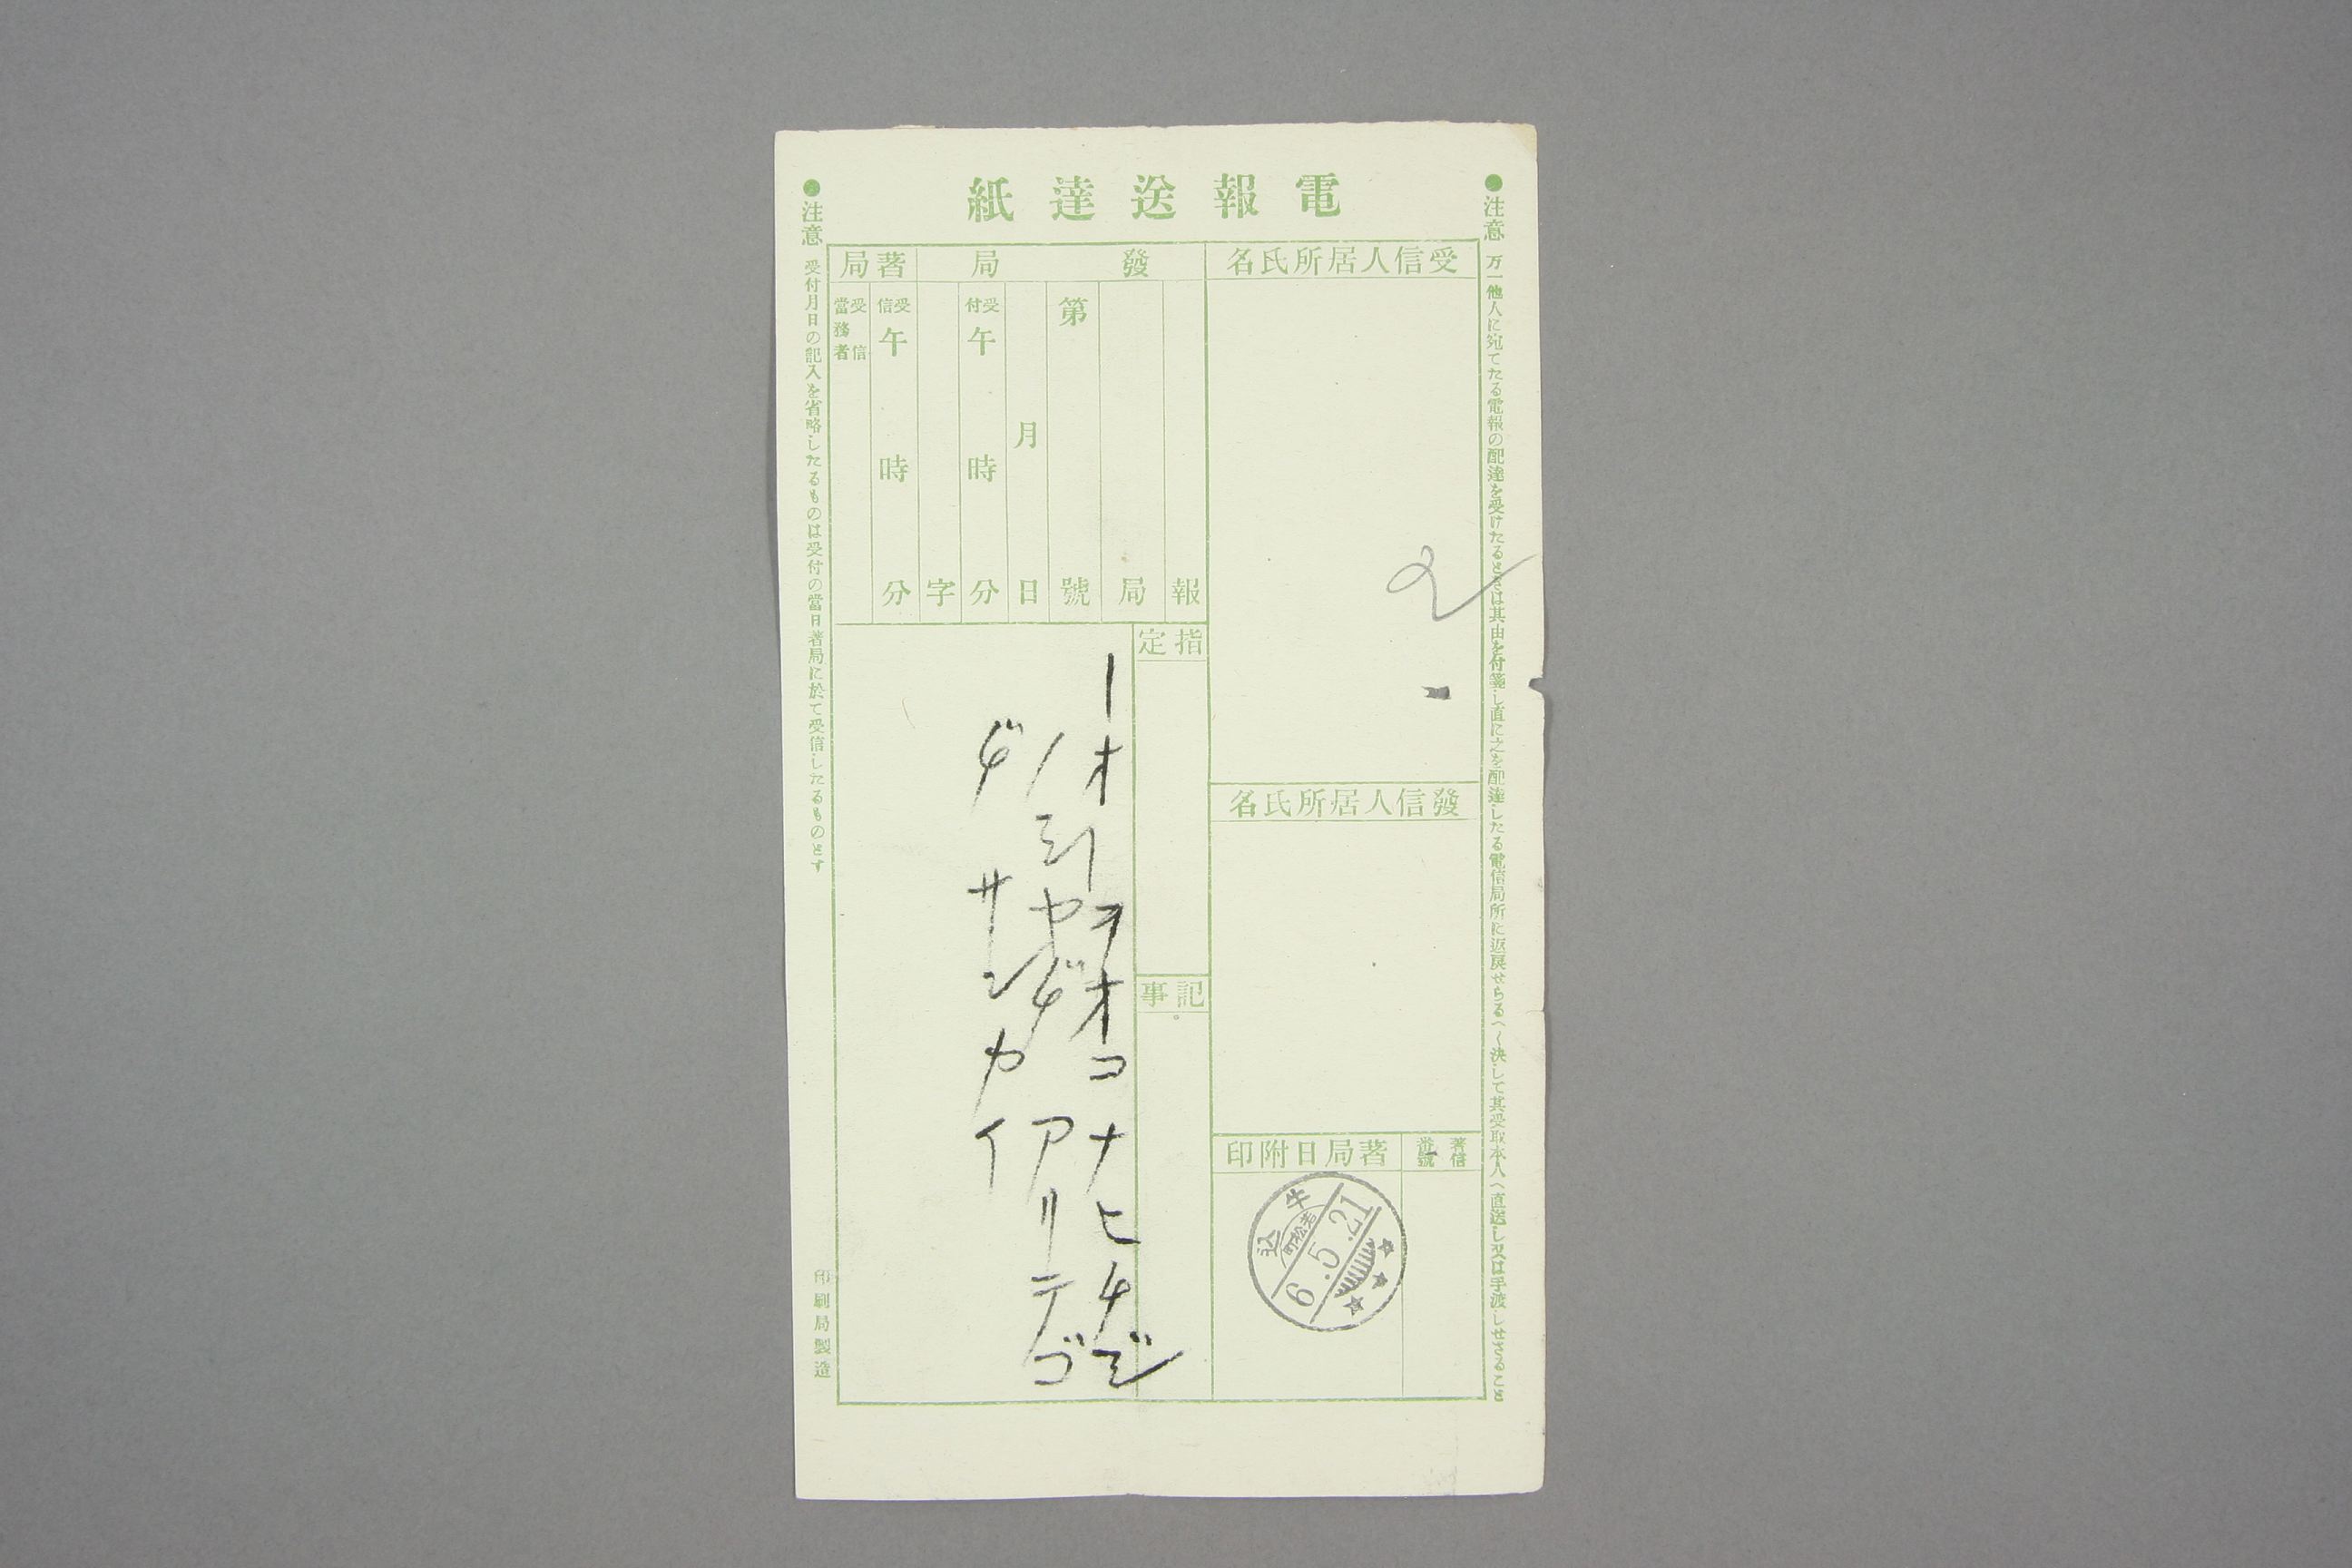 電報送達紙
●注意 万一他人に宛てたる電報の配達を受けたるときは其由を付箋し直に之を配達したる電信局所に返戻せらるへし決して其受取本人へ直送し又は手渡しせさること
受信人居所氏名
發信人居所氏名
著信番號
著局日附印
牛込
若松町
6.5.21
發局
著局
報
局
第號
月日
受付午時分
字
受信午時分
受信當務者
指定
記事
ーオーヲオコナヒチジ
ノミヤギアリテゴ
ヂサンカイ
●注意 受付月日の記入を省略したるものは受付の當日著局に於て受信したるものとす
印刷局製造